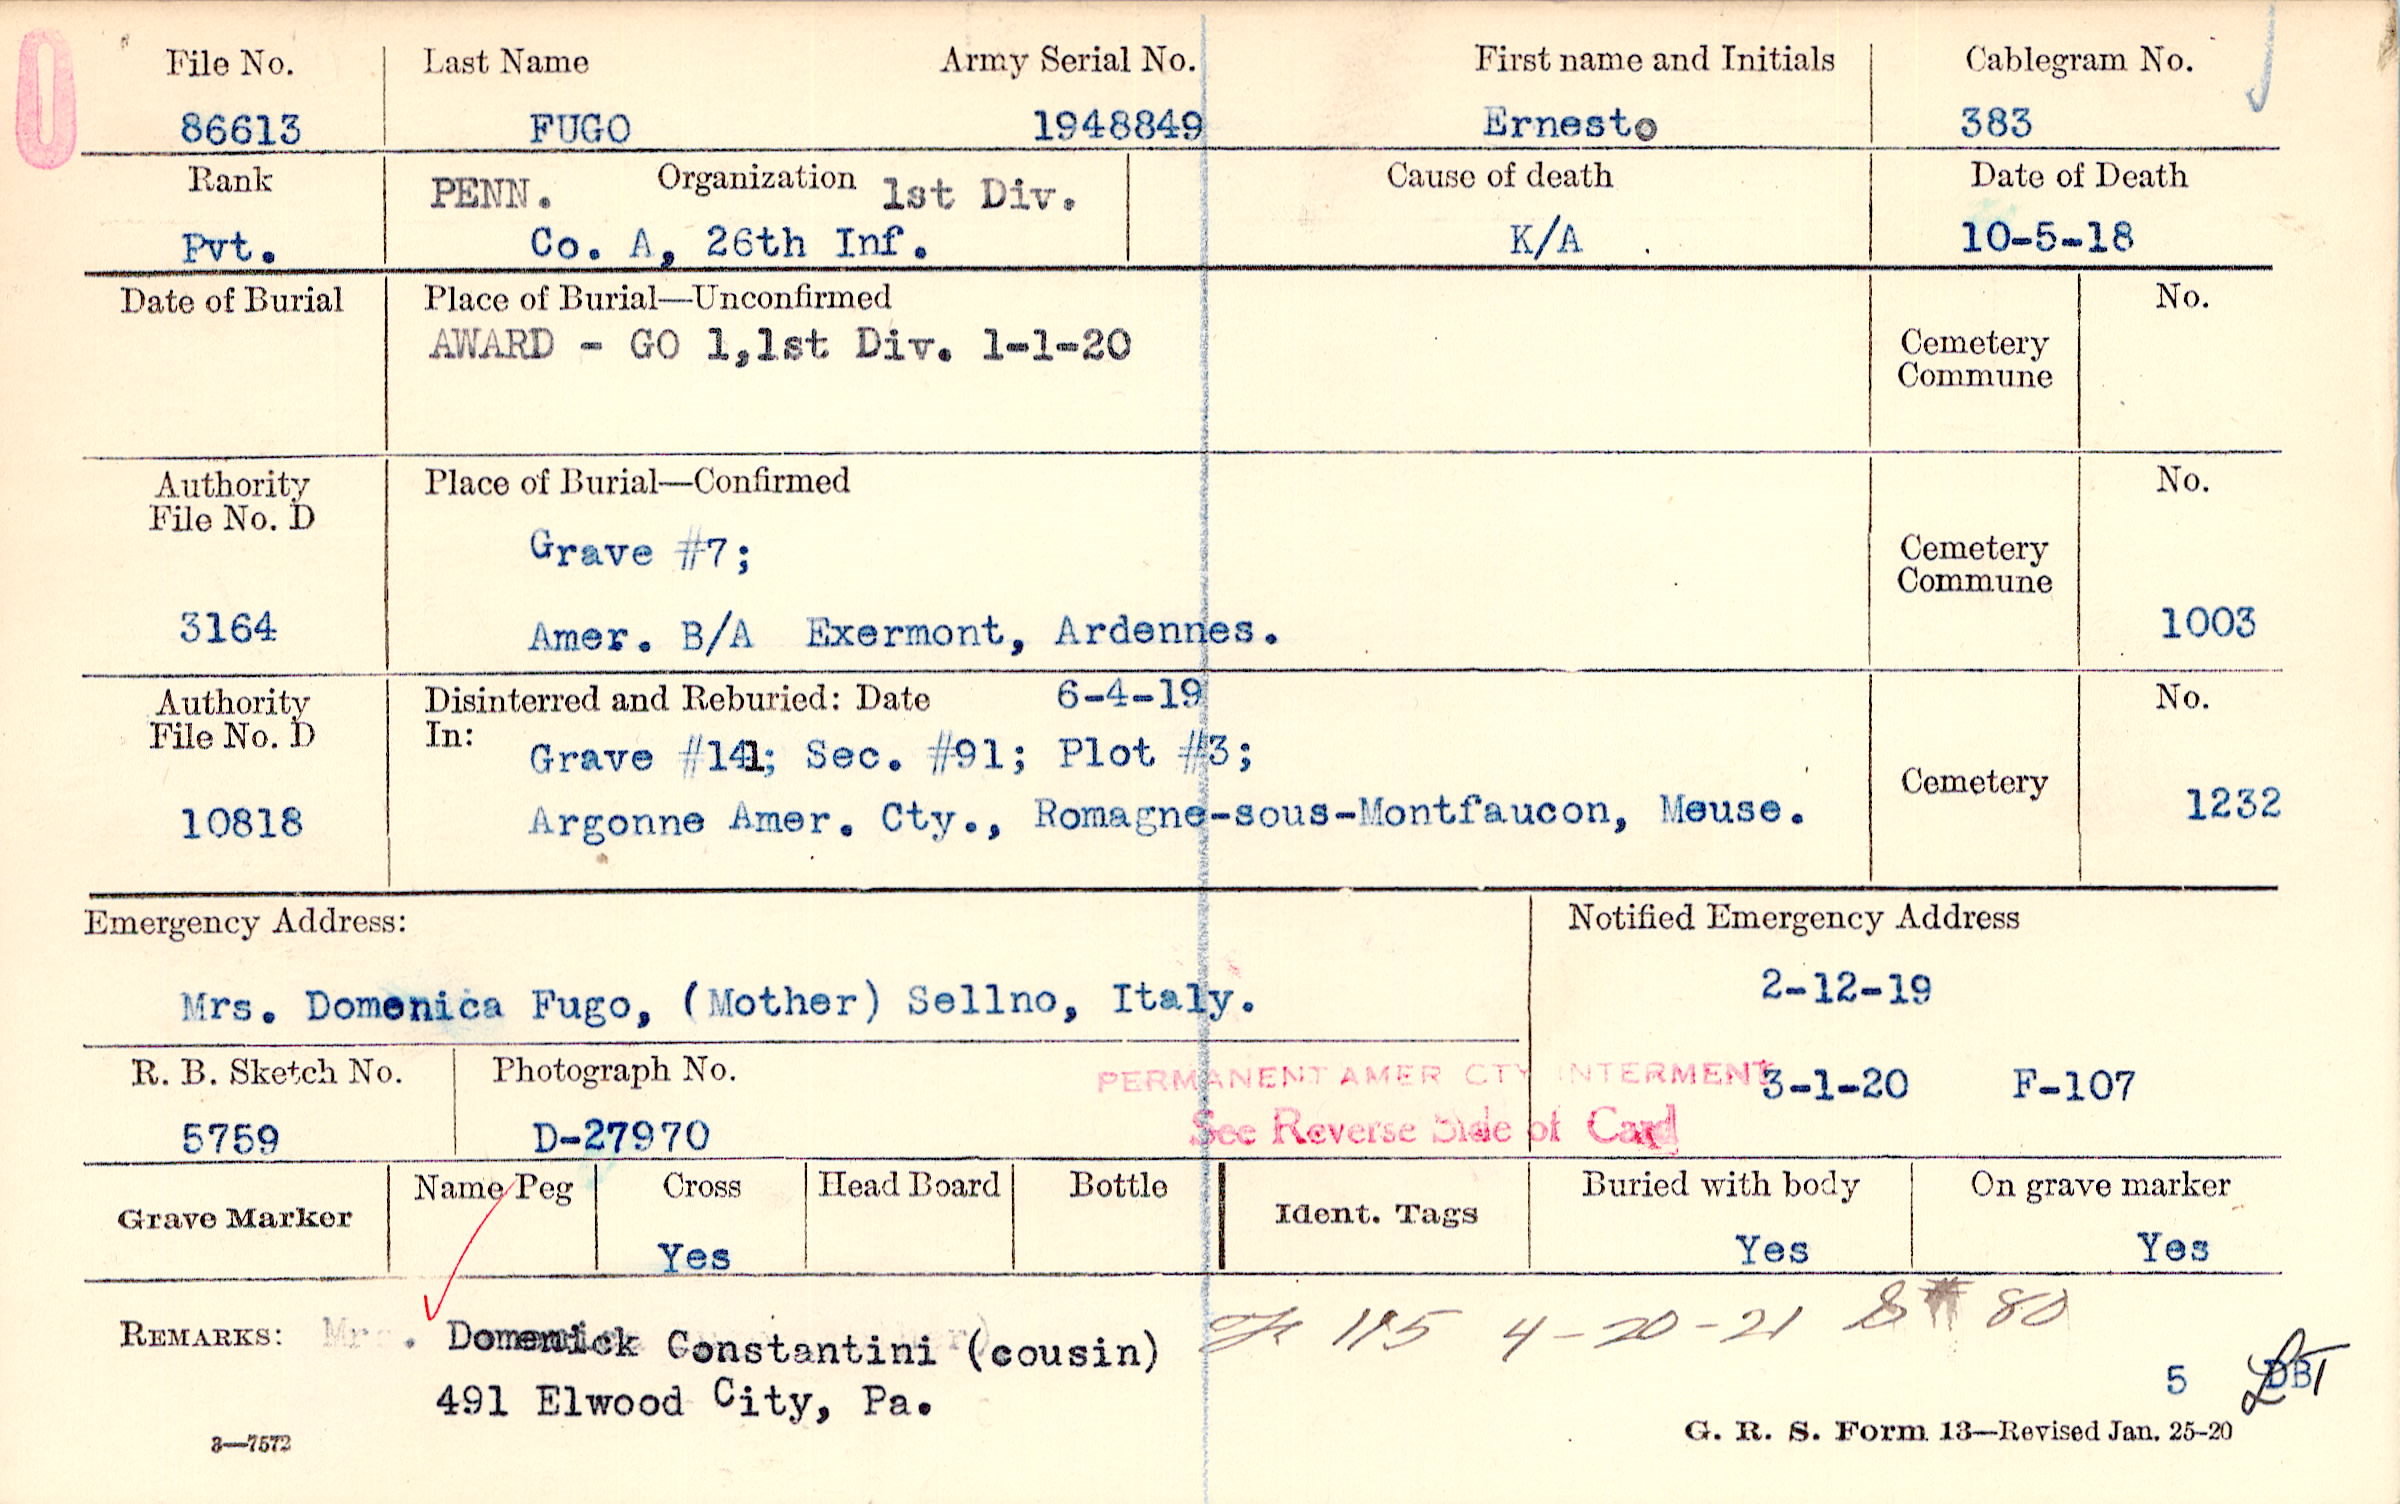 File No. Last Name Army Serial No. First name and Initials Cablegram No.
86613 FUGO 1948849 Ernesto 383
Rank PENN. Organization 1st Div. Cause of death Date of Death
Pvt. Co. A, 26th Inf. K/A 10-5-18
Date of Burial Place of Burial—Unconfirmed No.
AWARD - GO 1,1st Div. 1-1-20 Cemetery
Commune
Authority Place of Burial—Confirmed No.
File No. D
Grave #7; Cemetery
Commune
3164 Amer. B/A Exermont, Ardennes. 1003
Authority Disinterred and Reburied: Date 6-4-19 No.
File No. D In:
Grave #141; Sec. #91; Plot #3; Cemetery
10818 Argonne Amer. Cty., Romagne-sous-Montfaucon, Meuse. 1232
Emergency Address: Notified Emergency Address
Mrs. Domenica Fugo, (Mother) Sellno, Italy. 2-12-19
R. B. Sketch No. Photograph No. PERMANENT AMER CTY INTERMENT 3-1-20 F-107
5759 D-27970 See Reverse Side of Card
Grave Marker Name Peg Cross Head Board Bottle Ident. Tags Buried with body On grave marker
Yes Yes Yes
REMARKS: Domenick Constantini (cousin) 115 4-20-21 S# 80
491 Elwood City, Pa. 5
3—7572 G. R. S. Form 13—Revised Jan. 25-20